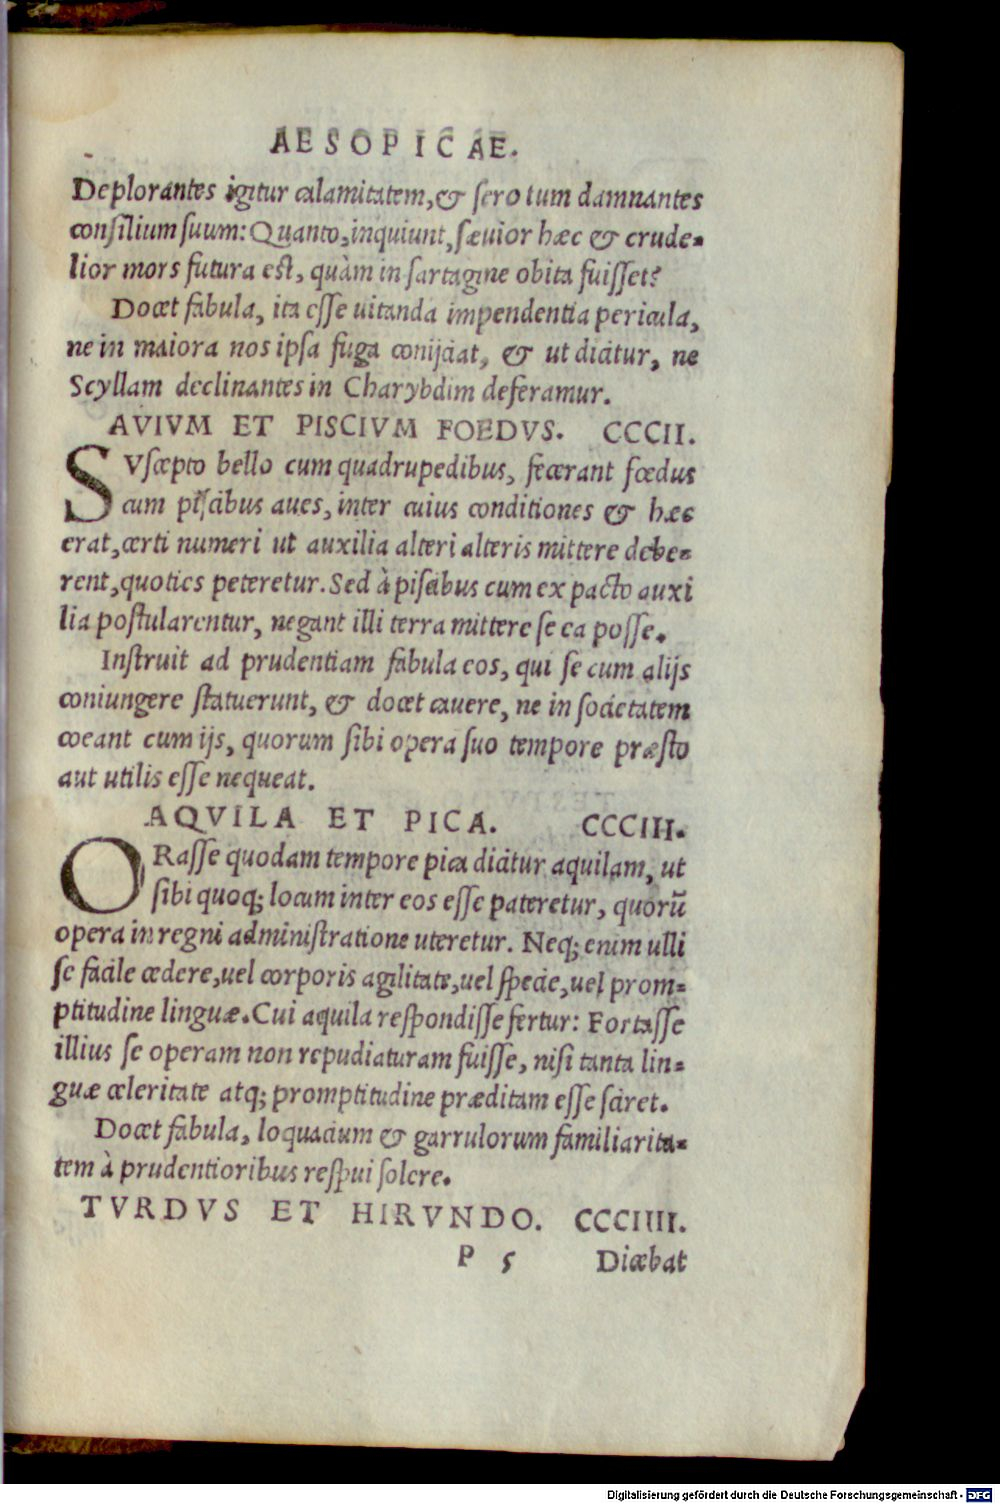 AESOPICAE.
Deplorantes igitur calamitatem, & sero tum damnantes
consilium suum: Quanto, inquiunt, sæuior hæc & crude-
lior mors futura est, quàm in sartagine obita fuisset?
Docet fabula, ita esse uitanda impendentia pericula,
ne in maiora nos ipsa fuga conijciat, & ut dicitur, ne
Scyllam declinantes in Charybdim deferamur.
AVIVM ET PISCIVM FOEDVS. CCCII.
SVscepto bello cum quadrupedibus, fecerant fœdus
cum piscibus aues, inter cuius conditiones & hæc
erat, certi numeri ut auxilia alteri alteris mittere debe-
rent, quoties peteretur. Sed à piscibus cum ex pacto auxi
lia postularentur, negant illi terra mittere se ea posse.
Instruit ad prudentiam fabula eos, qui se cum alijs
coniungere statuerunt, & docet cauere, ne in societatem
coeant cum ijs, quorum sibi opera suo tempore præsto
aut utilis esse nequeat.
AQVILA ET PICA. CCCIII.
ORasse quodam tempore pica dicitur aquilam, ut
sibi quoq; locum inter eos esse pateretur, quorũ
opera in regni administratione uteretur. Neq; enim ulli
se facile cedere, uel corporis agilitate, uel specie, uel prom-
ptitudine linguæ. Cui aquila respondisse fertur: Fortasse
illius se operam non repudiaturam fuisse, nisi tanta lin-
guæ celeritate atq; promptitudine præditam esse sciret.
Docet fabula, loquacium & garrulorum familiarita-
tem à prudentioribus respui solere.
TVRDVS ET HIRVNDO. CCCIIII.
P 5 Dicebat
Digitalisierung gefördert durch die Deutsche Forschungsgemeinschaft - DFG